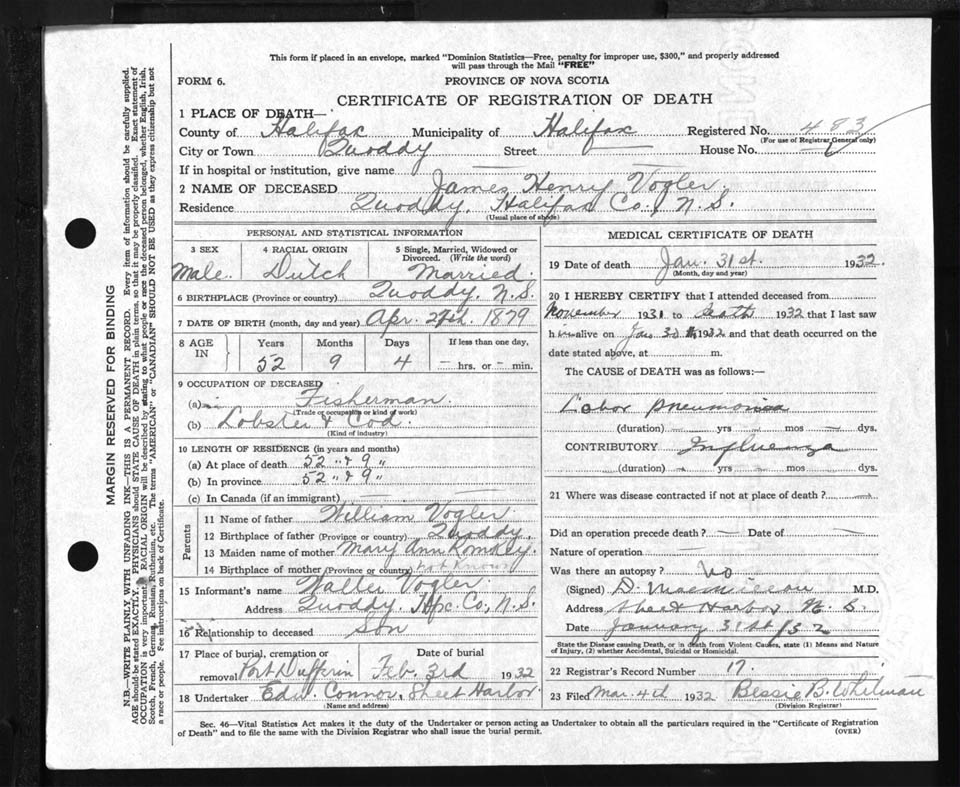 This form if placed in an envelope, marked "Dominion Statistics—Free, penalty for improper use, $300," and properly addressed
will pass through the Mail "FREE"
FORM 6.
PROVINCE OF NOVA SCOTIA
CERTIFICATE OF REGISTRATION OF DEATH
1 PLACE OF DEATH—
County of Halifax Municipality of Halifax Registered No. 483
(For use of Registrar General only)
City or Town Quoddy Street — House No. —
If in hospital or institution, give name —
2 NAME OF DECEASED James Henry Vogler
Residence Quoddy, Halifax Co., N.S.
(Usual place of abode)
PERSONAL AND STATISTICAL INFORMATION
3 SEX 4 RACIAL ORIGIN 5 Single, Married, Widowed or
Divorced. (Write the word)
Male. Dutch Married.
6 BIRTHPLACE (Province or country) Quoddy, N.S.
7 DATE OF BIRTH (month, day and year) Apr. 27th. 1879
8 AGE IN Years Months Days If less than one day,
52 9 4 — hrs. or — min.
9 OCCUPATION OF DECEASED
(a) Fisherman.
(Trade or occupation or kind of work)
(b) Lobster & Cod.
(Kind of industry)
10 LENGTH OF RESIDENCE (in years and months)
(a) At place of death 52 " & 9 "
(b) In province 52 " & 9 "
(c) In Canada (if an immigrant) —
Parents
11 Name of father William Vogler
12 Birthplace of father (Province or country) Quoddy
13 Maiden name of mother Mary Ann Romkey.
14 Birthplace of mother (Province or country) Not Known
15 Informant's name Vogler
Address Quoddy, Hfx. Co., N.S.
16 Relationship to deceased Son
17 Place of burial, cremation or removal Date of burial
Port Dufferin Feb. 3rd 1932
18 Undertaker Edw. Connors, Sheet Harbor
(Name and address)
MEDICAL CERTIFICATE OF DEATH
19 Date of death Jan. 31st. 1932.
(Month, day and year)
20 I HEREBY CERTIFY that I attended deceased from
November 1931 to death 1932 that I last saw
him alive on Jan 30th 1932 and that death occurred on the
date stated above, at m.
The CAUSE of DEATH was as follows:—
Lobar Pneumonia
(duration) — yrs — mos — dys.
CONTRIBUTORY Influenza
(duration) — yrs — mos — dys.
21 Where was disease contracted if not at place of death? —
Did an operation precede death? — Date of —
Nature of operation —
Was there an autopsy? no
(Signed) D. M.D.
Address Sheet Harbor N. S.
Date January 31st /32
State the Disease causing Death, or in death from Violent Causes, state (1) Means and Nature
of Injury, (2) whether Accidental, Suicidal or Homicidal.
22 Registrar's Record Number 17.
23 Filed Mar. 4th 1932 Bessie B. Whitman
(Division Registrar)
Sec. 46—Vital Statistics Act makes it the duty of the Undertaker or person acting as Undertaker to obtain all the particulars required in the "Certificate of Registration
of Death" and to file the same with the Division Registrar who shall issue the burial permit. (OVER)
MARGIN RESERVED FOR BINDING
N.B.—WRITE PLAINLY WITH UNFADING INK—THIS IS A PERMANENT RECORD. Every item of information should be carefully supplied.
AGE should be stated EXACTLY. PHYSICIANS should STATE CAUSE OF DEATH in plain terms, so that it may be properly classified. Exact statement of
OCCUPATION is very important. RACIAL ORIGIN will be described by stating to what people or race the deceased person belonged, whether English, Irish,
Scotch, French, German, Russian, Ruthenian, etc. The terms "AMERICAN" or "CANADIAN" SHOULD NOT BE USED as they express citizenship but not
a race or people. See instructions on back of Certificate.